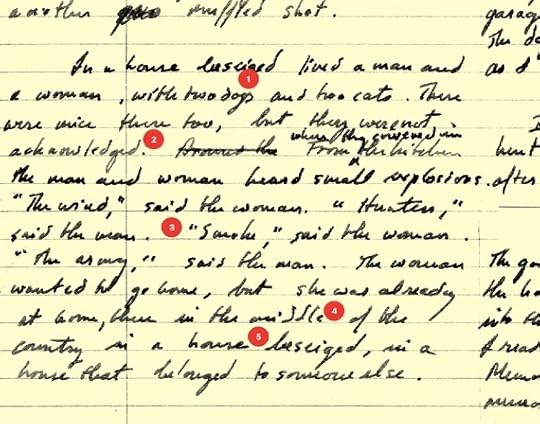 another muffled shot.
In a house beseiged lived a man and
1
a woman, with two dogs and two cats. There
were mice there too, but they were not
acknowledged. 2 Around the From the kitchen
where they cowered in
the man and woman heard small explosions.
"The wind," said the woman. "Hunters,"
said the man. 3 "Smoke," said the woman.
"The army," said the man. The woman
wanted to go home, but she was already
at home, there in the middle 4 of the
country in a house 5 beseiged, in a
house that belonged to someone else.
garag
The do
as d
I
bent
after
The go
the ho
into th
I read
Mem